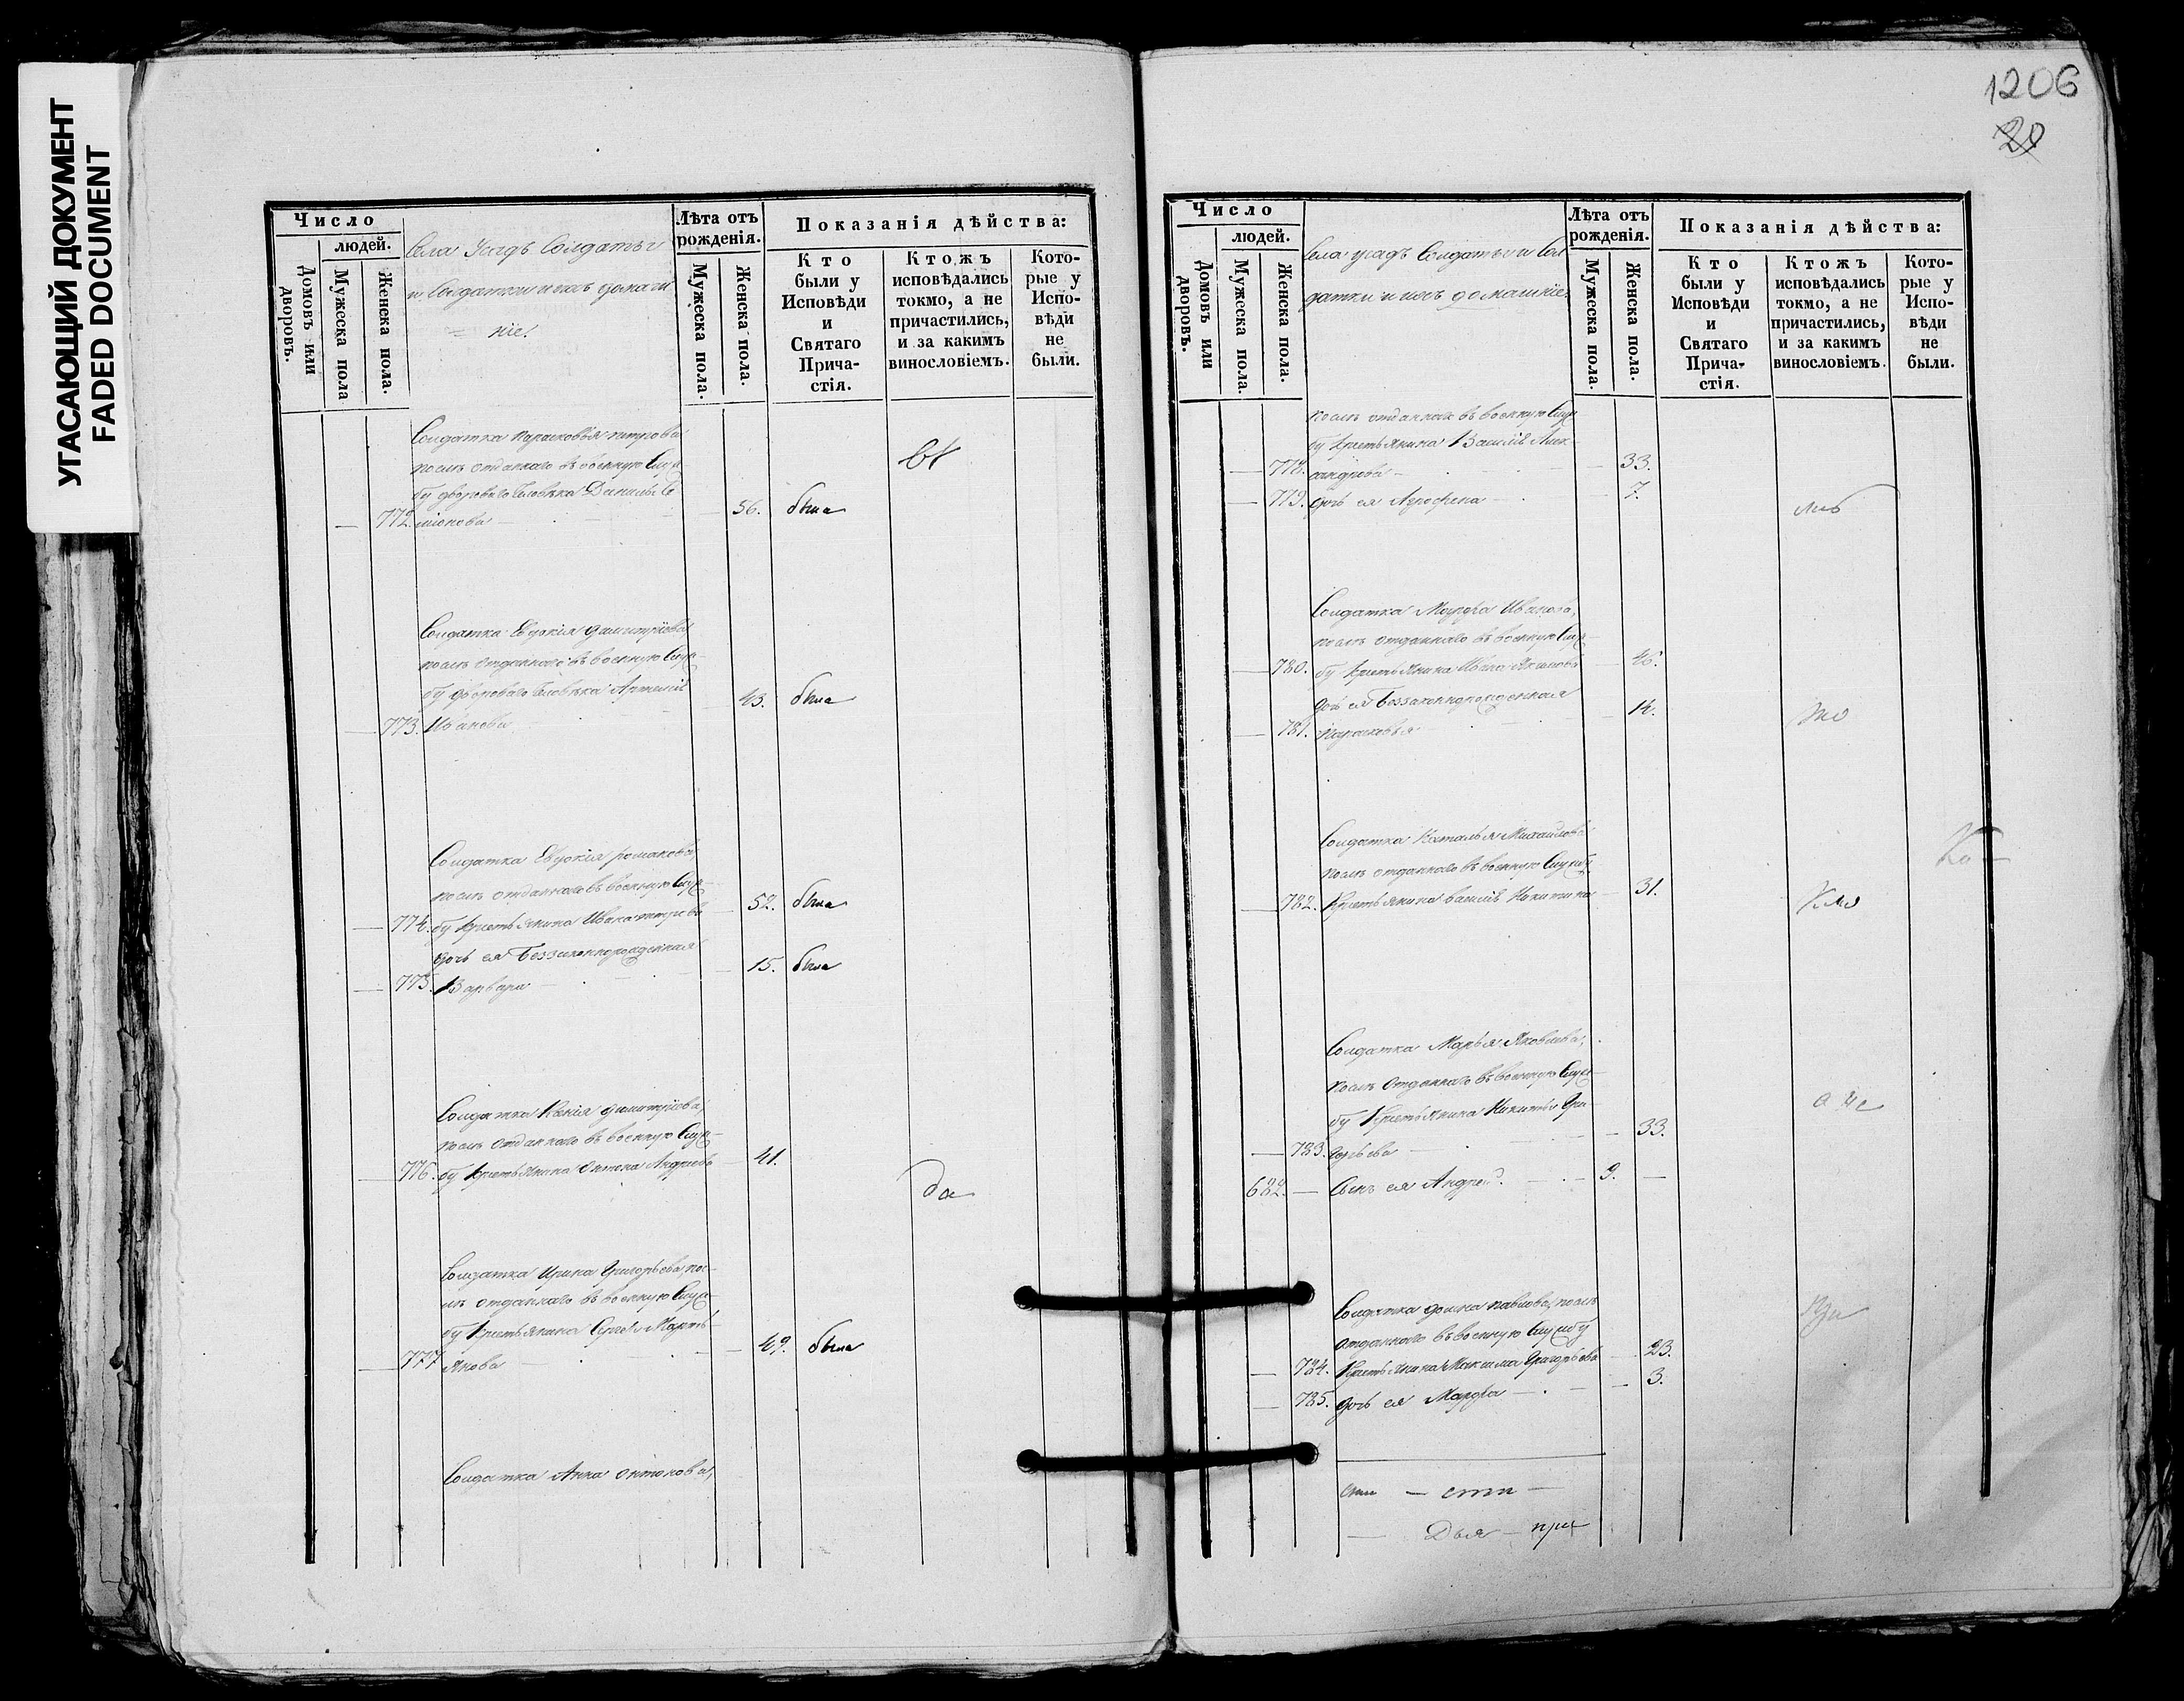 УГАСАЮЩИЙ ДОКУМЕНТ
FADED DOCUMENT
Число
людей.
Домовъ или дворовъ.
Мужеска пола
Женска пола.
Села Усадъ Солдаты
и Солдатки и ихъ домаш
= ніе.
Лѣта отъ
рожденія.
Мужеска пола.
Женска пола.
Показанія дѣйства:
Кто
были у
Исповѣди
и
Святаго
Прича-
стія.
Ктожъ
исповѣдались
токмо, а не
причастились,
и за какимъ
винословіемъ.
Кото-
рые у
Испо-
вѣди
не
были.
Солдатка Парасковья Петрова
послѣ отданнаго въ военную служ
бу двороваго человѣка Данилы Се
772. міонова — 56. была
Солдатка Евдокія Димитріева,
послѣ отданнаго въ военную служ-
бу двороваго человѣка Артемія
773. Иванова 43. была
Солдатка Евдокія Романова,
послѣ отданнаго въ военную служ-
774. бу крестьянина Ивана Петрова 52. была
дочь ея беззаконнорожденная
775. Варвара — 15. была
Солдатка Ксенія Димитріева,
послѣ отданнаго въ военную служ-
776. бу крестьянина Антона Андреева 41.
да
Солдатка Ирина Григорьева, пос-
лѣ отданнаго въ военную служ-
бу крестьянина Сергѣя Марть-
777 янова — 49. была
Солдатка Анна Антонова,
1206
20
Число
людей.
Домовъ или дворовъ.
Мужеска пола.
Женска пола.
Села Усадъ Солдаты и Сол
датки и ихъ домашніе.
Лѣта отъ
рожденія.
Мужеска пола.
Женска пола.
Показанія дѣйства:
Кто
были у
Исповѣди
и
Святаго
Прича-
стія.
Ктожъ
исповѣдались
токмо, а не
причастились,
и за какимъ
винословіемъ.
Кото-
рые у
Испо-
вѣди
не
были.
послѣ отданнаго въ военную служ
бу крестьянина Василія Алек-
778. сандрова — 33.
779. дочь ея Агрофена — 7.
Солдатка Марфа Иванова,
послѣ отданнаго въ военную служ-
780. бу крестьянина Ивана Акимова 46.
дочь ея беззаконнорожденная
781. Парасковья 14.
Солдатка Наталья Михайлова
послѣ отданнаго въ военную службу
782. крестьянина Василія Никитина 31.
Солдатка Марья Яковлева,
послѣ отданнаго въ военную служ-
бу крестьянина Никиты Гри-
783. горьева — 33.
682. — Сынъ ея Андрей. — 9. —
Солдатка Домна Павлова, послѣ
отданнаго въ военную службу
784. крестьянина Максима Григорьева 23.
785. дочь ея Марфа — 3.